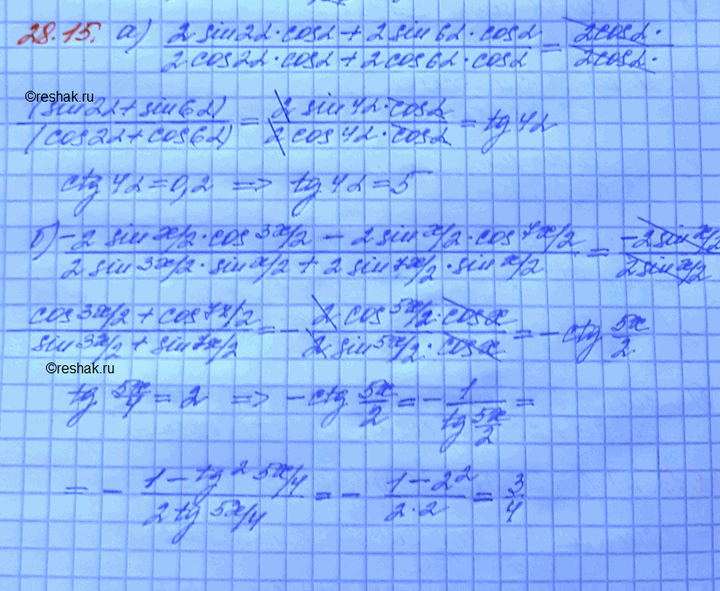 28.15. а) (2 sin2α·cosα + 2 sin6α·cosα)/(2 cos2α·cosα + 2 cos6α·cosα) = (2cosα·)/(2cosα·)
©reshak.ru
(sin2α + sin6α)/(cos2α + cos6α) = (2 sin4α·cosα)/(2 cos4α·cosα) = tg4α
ctg4α = 0,2 => tg4α = 5
б) (-2 sin x/2·cos 3x/2 - 2 sin x/2·cos 7x/2)/(2 sin 3x/2·sin x/2 + 2 sin 7x/2·sin x/2) = (-2 sin x/2)/(2 sin x/2)
(cos 3x/2 + cos 7x/2)/(sin 3x/2 + sin 7x/2) = - (2 cos 5x/2·cosx)/(2 sin 5x/2·cosx) = - ctg 5x/2
©reshak.ru
tg 5x/4 = 2 => - ctg 5x/2 = - 1/(tg 5x/2) =
= - (1 - tg² 5x/4)/(2 tg 5x/4) = - (1 - 2²)/(2·2) = 3/4